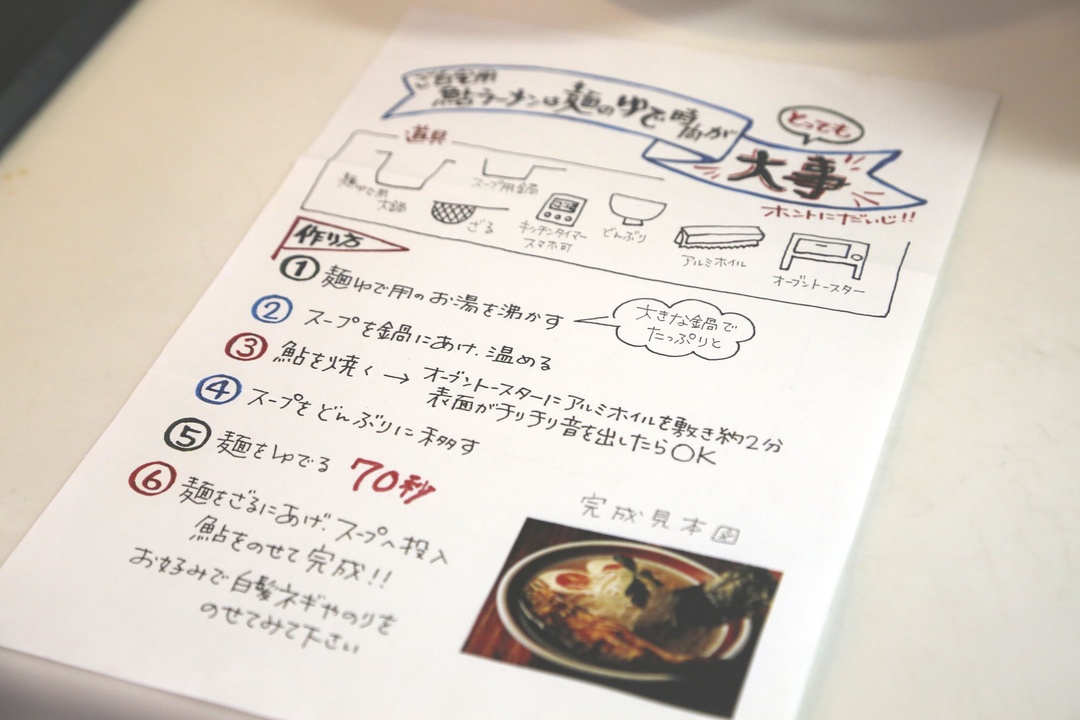 ご自宅用
鮎ラーメンは麺のゆで時間が
とっても
大事
ホントにだいじ!!
道具
麺ゆで用
大鍋
スープ用鍋
ざる
キッチンタイマー
スマホ可
どんぶり
アルミホイル
オーブントースター
作り方
① 麺ゆで用のお湯を沸かす
大きな鍋で
たっぷりと
② スープを鍋にあけ、温める
③ 鮎を焼く → オーブントースターにアルミホイルを敷き約2分
表面がチリチリ音を出したらOK
④ スープをどんぶりに移す
⑤ 麺をゆでる 70秒
⑥ 麺をざるにあげ、スープへ投入
鮎をのせて完成!!
お好みで白髪ネギやのりを
のせてみて下さい
完成見本図